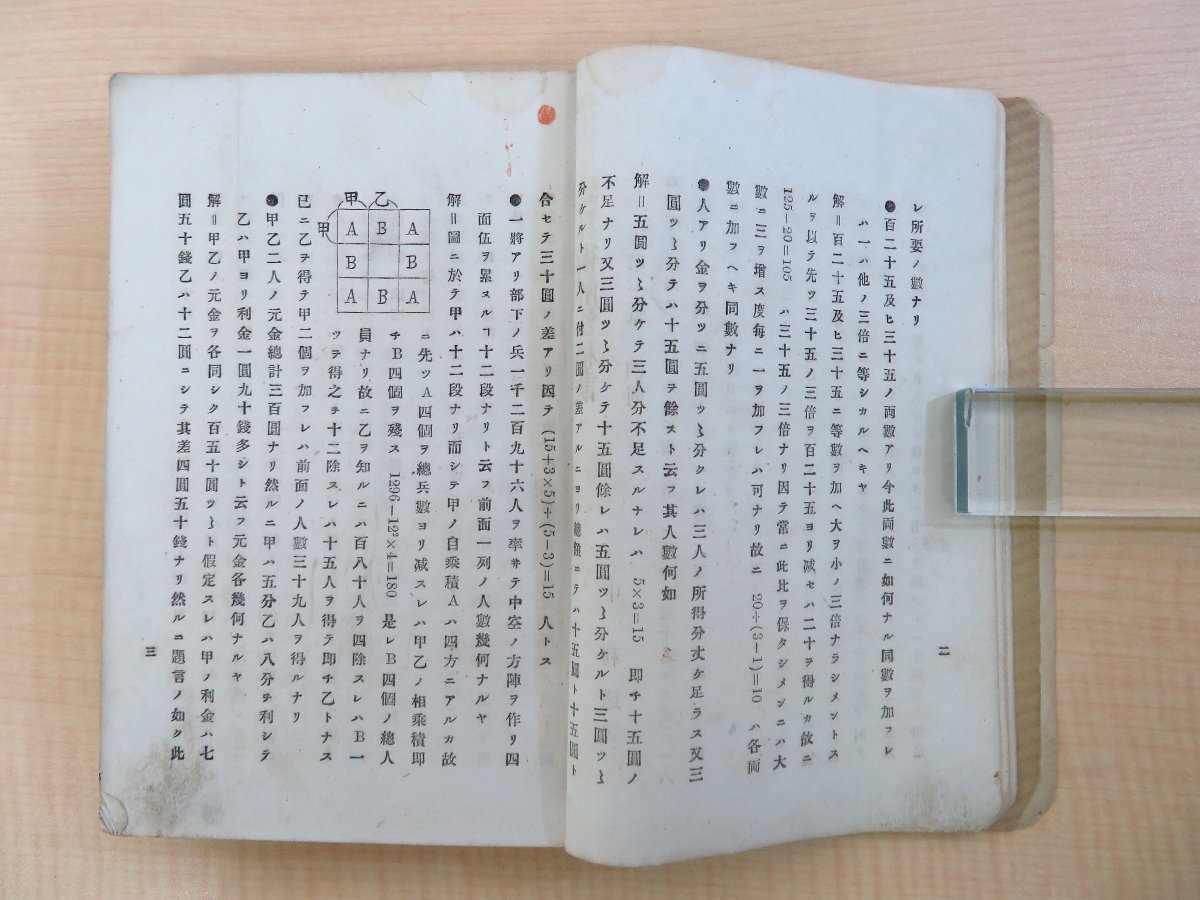 二
レ所要ノ數ナリ
●百二十五及ヒ三十五ノ両數アリ今此両數ニ如何ナル同數ヲ加フレ
ハ一ハ他ノ三倍ニ等シカルヘキヤ
解＝百二十五及ヒ三十五ニ等數ヲ加ヘ大ヲ小ノ三倍ナラシメントス
ルヲ以テ先ツ三十五ノ三倍ヲ百二十五ヨリ减セハ二十ヲ得ルカ故ニ
125−20=105 ハ三十五ノ三倍ナリ因テ常ニ此比ヲ保タシメンニハ大
數ニ三ヲ增ス度每ニ一ヲ加フレハ可ナリ故ニ 20÷(3−1)=10 ハ各両
數ニ加フヘキ同數ナリ
●人アリ金ヲ分ツニ五圓ツヽ分クレハ三人ノ所得分丈ケ足ラス又三
圓ツヽ分テハ十五圓ヲ餘スト云フ其人數何如
解＝五圓ツヽ分ケテ三人分不足スルナレハ 5×3=15 即チ十五圓ノ
不足ナリ又三圓ツヽ分ケテ十五圓餘レハ五圓ツヽ分ケルト三圓ツヽ
分ケルト一人ニ付二圓ノ差アルニヨリ總額ニテハ十五圓ト十五圓ト
合セテ三十圓ノ差アリ因テ (15+3×5)÷(5−3)=15 人トス
●一將アリ部下ノ兵一千二百九十六人ヲ率キテ中空ノ方陣ヲ作リ四
面伍ヲ累スルヿ十二段ナリト云フ前面一列ノ人數幾何ナルヤ
解＝圖ニ於テ甲ハ十二段ナリ而シテ甲ノ自乘積Aハ四方ニアルカ故
ニ先ツA四個ヲ總兵數ヨリ减スレハ甲乙ノ相乘積即
チB四個ヲ殘ス 1296−12²×4=180 是レB四個ノ總人
員ナリ故ニ乙ヲ知ルニハ百八十人ヲ四除スレハB一
ツヲ得之チ十二除スレハ十五人ヲ得テ即チ乙トナス
甲 乙
甲
A B A
B B
A B A
已ニ乙ヲ得テ甲二個ヲ加フレハ前面ノ人數三十九人ヲ得ルナリ
●甲乙二人ノ元金總計三百圓ナリ然ルニ甲ハ五分乙ハ八分チ利シテ
乙ハ甲ヨリ利金一圓九十錢多シト云フ元金各幾何ナルヤ
解＝甲乙ノ元金ヲ各同シク百五十圓ツヽト假定スレハ甲ノ利金ハ七
圓五十錢乙ハ十二圓ニシテ其差四圓五十錢ナリ然ルニ題言ノ如ク此
三